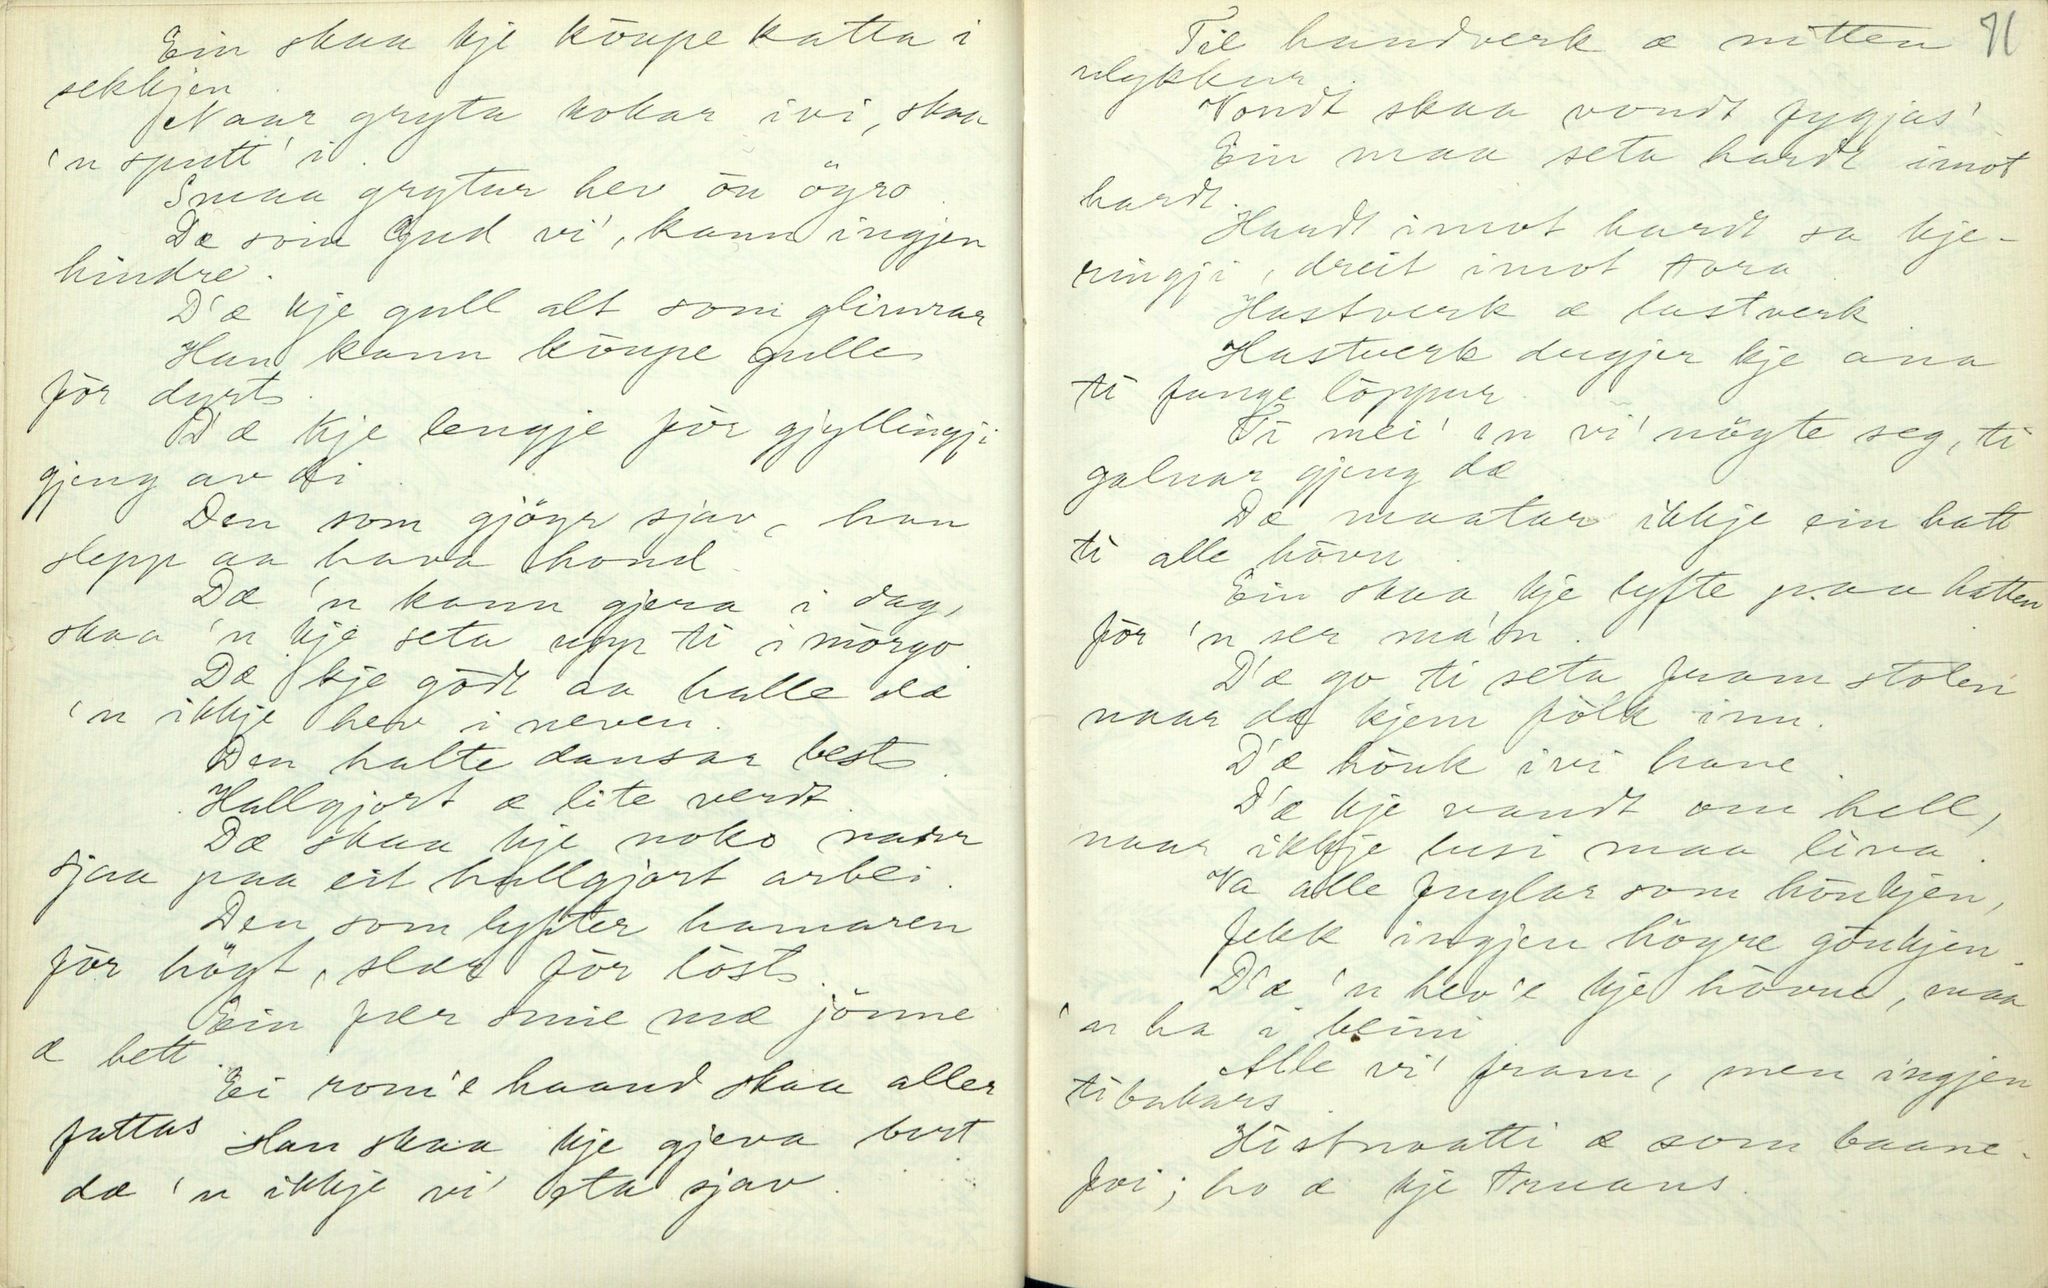 Ein skaa kje kõupe katta i
sekkjen.
Naar gryta kokar ivi, skaa
'n sputt' i.
Smaa grytur hev õu öyro.
Dæ som Gud vi', kann ingjen
hindre.
D'æ kje gull alt som glimrar
Han kann kõupe gulle
för dyrt.
D'æ kje lengje för gjyllingji
gjeng av di.
Den som gjöyr sjav, han
slepp aa hava hond.
Dæ 'n kann gjera i dag,
skaa 'n kje seta upp ti i mörgo.
Dæ kje gödt aa halle dæ
'n ikkje hev i neven.
Den halte dansar best.
Hallgjort æ lite verdt.
Dæ skaa kje noko naar
sjaa paa eit hallgjort arbei.
Den som lyfter hamaren
för högt, slær för löst.
Ein fær smie mæ jönne
æ hett.
Ei rom'e haand skaa aller
fattas
Han skaa kje gjeva burt
dæ 'n ikkje vi' eta sjav.
71
Til handverk æ nitten
ulykkur.
Vondt skaa vondt fygjas'
Ein maa seta hardt imot
hardt.
Hardt imot hardt sa kje-
ringji, dreit imot tora.
Hastverk æ lastverk.
Hastverk dugjer kje ana
ti fange löppur.
Ti mei' 'n vi' nögte seg, ti
galnar gjeng dæ
Dæ maatar ikkje ein hatt
ti alle hövu.
Ein skaa kje lyfte paa hatten
för 'n ser ma'n.
D'æ go ti seta fram stolen
naar dæ kjem fölk inn.
D'æ höuk ivi hane.
D'æ kje vandt om hell,
naar ikkje lusi maa liva.
Va alle fuglar som höukjen,
fekk ingjen högre göukjen.
D'æ 'n hev'e kje hövue, maa
'n ha i beini
Alle vi' fram, men ingjen
tibakars.
Histnaatti æ som baane-
foi; ho æ kje truans.